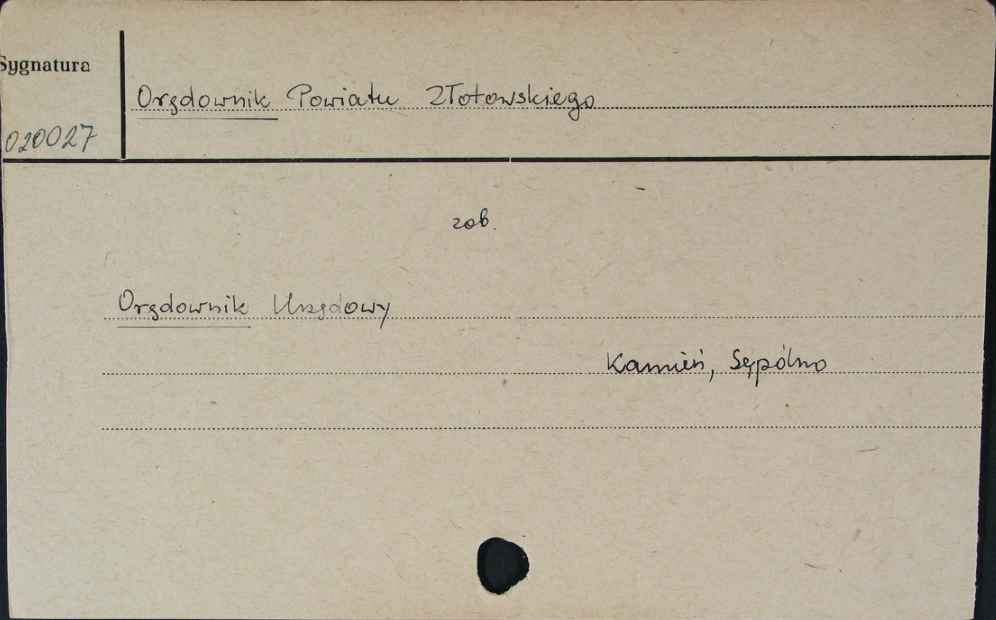 Sygnatura
Orędownik Powiatu Złotowskiego
020027
zob.
Orędownik Urzędowy
Kamień, Sępólno